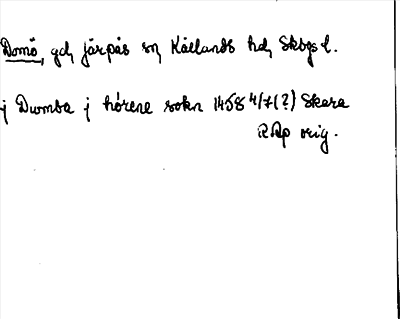 Domö, gd, Järpås sn, Kållands hd, Skbgs l.
j Dwmba j hörene sokn 1458 4/7(?) Skara
RAp orig.